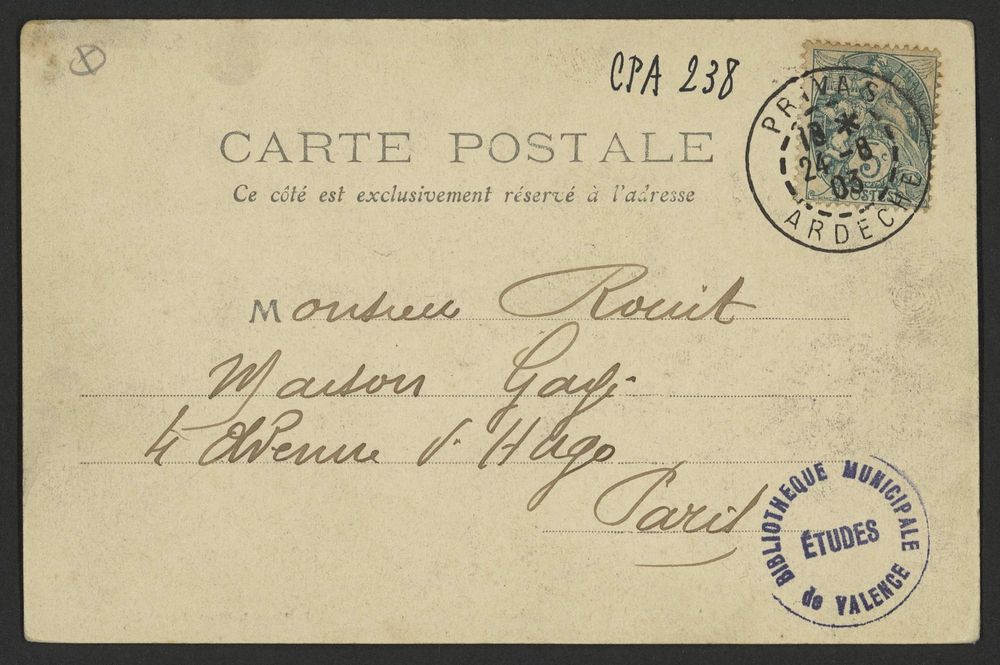 CPA 238
PRIVAS
18 *
24 - 8
03
ARDECHE
5c
POSTES
CARTE POSTALE
Ce côté est exclusivement réservé à l'adresse
Monsieur Rouit
Maison
4 Avenue V. Hugo
Paris
BIBLIOTHEQUE MUNICIPALE
ÉTUDES
de VALENCE